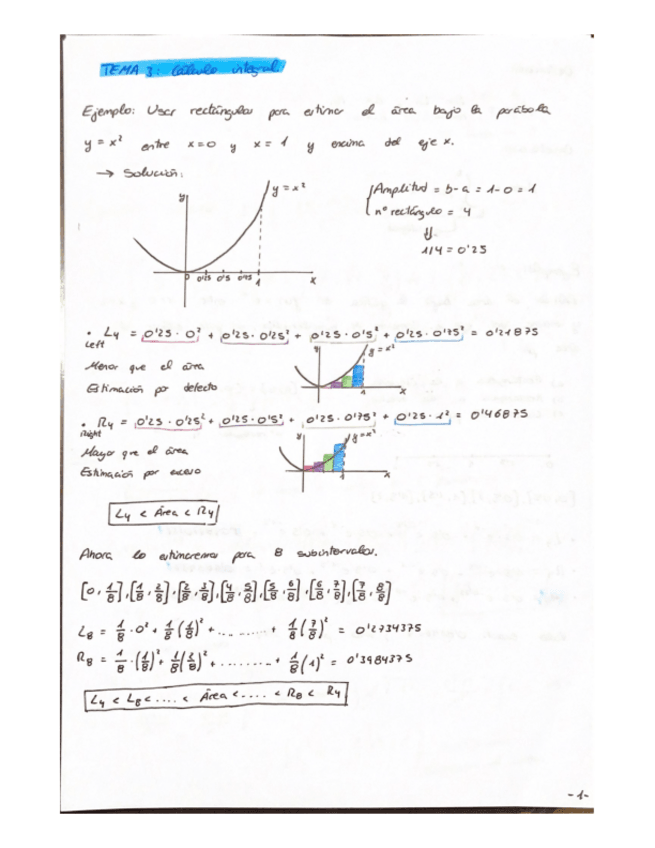 TEMA 3: Cálculo integral.
Ejemplo: Usar rectángulos para estimar el área bajo la parábola
y = x² entre x=0 y x = 1 y encima del eje x.
→ Solución:
y
y = x²
0 0'25 0'5 0'75 1 x
Amplitud = b-a = 1-0 = 1
nº rectángulo = 4
⇓
1/4 = 0'25
• L4 = 0'25 · 0² + 0'25 · 0'25² + 0'25 · 0'5² + 0'25 · 0'75² = 0'21875
Left
Menor que el área
Estimación por defecto
y
y = x²
1 x
• R4 = 0'25 · 0'25² + 0'25 · 0'5² + 0'25 · 0'75² + 0'25 · 1² = 0'46875
Right
Mayor que el área
Estimación por exceso
y
y = x²
1 x
L4 < Área < R4
Ahora lo estimaremos para 8 subintervalos.
[0, 1/8], [1/8, 2/8], [2/8, 3/8], [4/8, 5/8], [5/8, 6/8], [6/8, 7/8], [7/8, 8/8]
L8 = 1/8 · 0² + 1/8 (1/8)² + ........... + 1/8 (7/8)² = 0'2734375
R8 = 1/8 · (1/8)² + 1/8 (2/8)² + ........ + 1/8 (1)² = 0'3984375
L4 < L8 < .... < Área < .... < R8 < R4
-1-